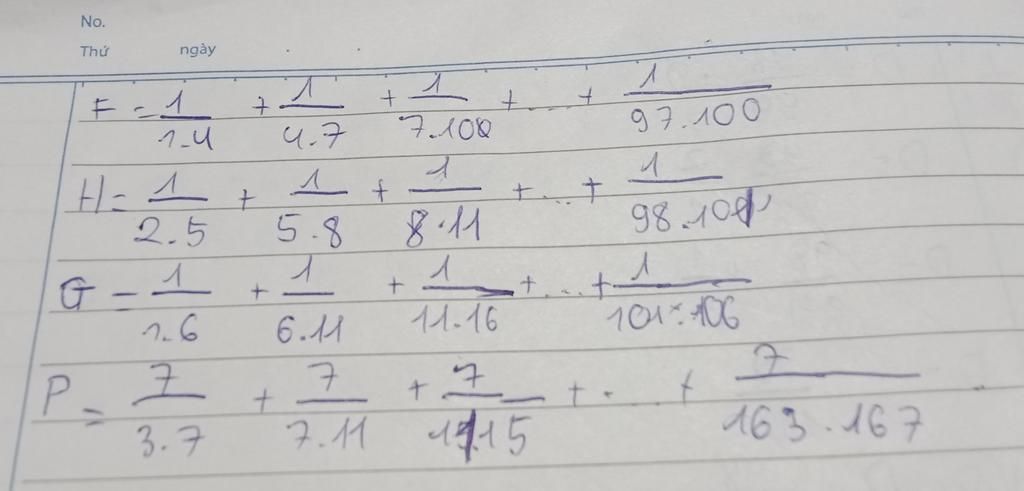 No.
Thứ ngày
F = 1/1.4 + 1/4.7 + 1/7.100 + ... + 1/97.100
H = 1/2.5 + 1/5.8 + 1/8.11 + ... + 1/98.101
G = 1/1.6 + 1/6.11 + 1/11.16 + ... + 1/101.106
P = 7/3.7 + 7/7.11 + 7/11.15 + ... + 7/163.167